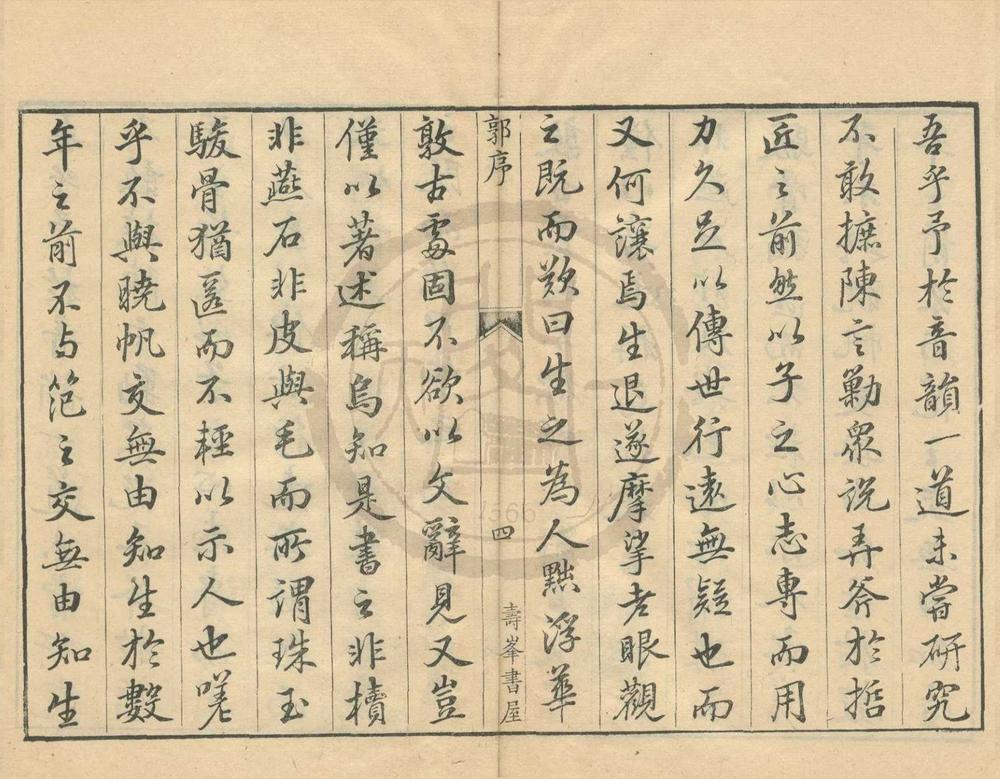 吾乎予於音韻一道未嘗研究
不敢摭陳言勦眾說弄斧於哲
匠之前然以子之心志專而用
力久足以傳世行遠無疑也而
又何讓焉生退遂摩挲老眼觀
之既而歎曰生之為人黜浮華
郭序
四
壽峯書屋
敦古處固不欲以文辭見又豈
僅以著述稱烏知是書之非櫝
非燕石非皮與毛而所謂珠玉
駿骨猶匿而不輕以示人也嗟
乎不與曉帆交無由知生於數
年之前不与範之交無由知生
1566